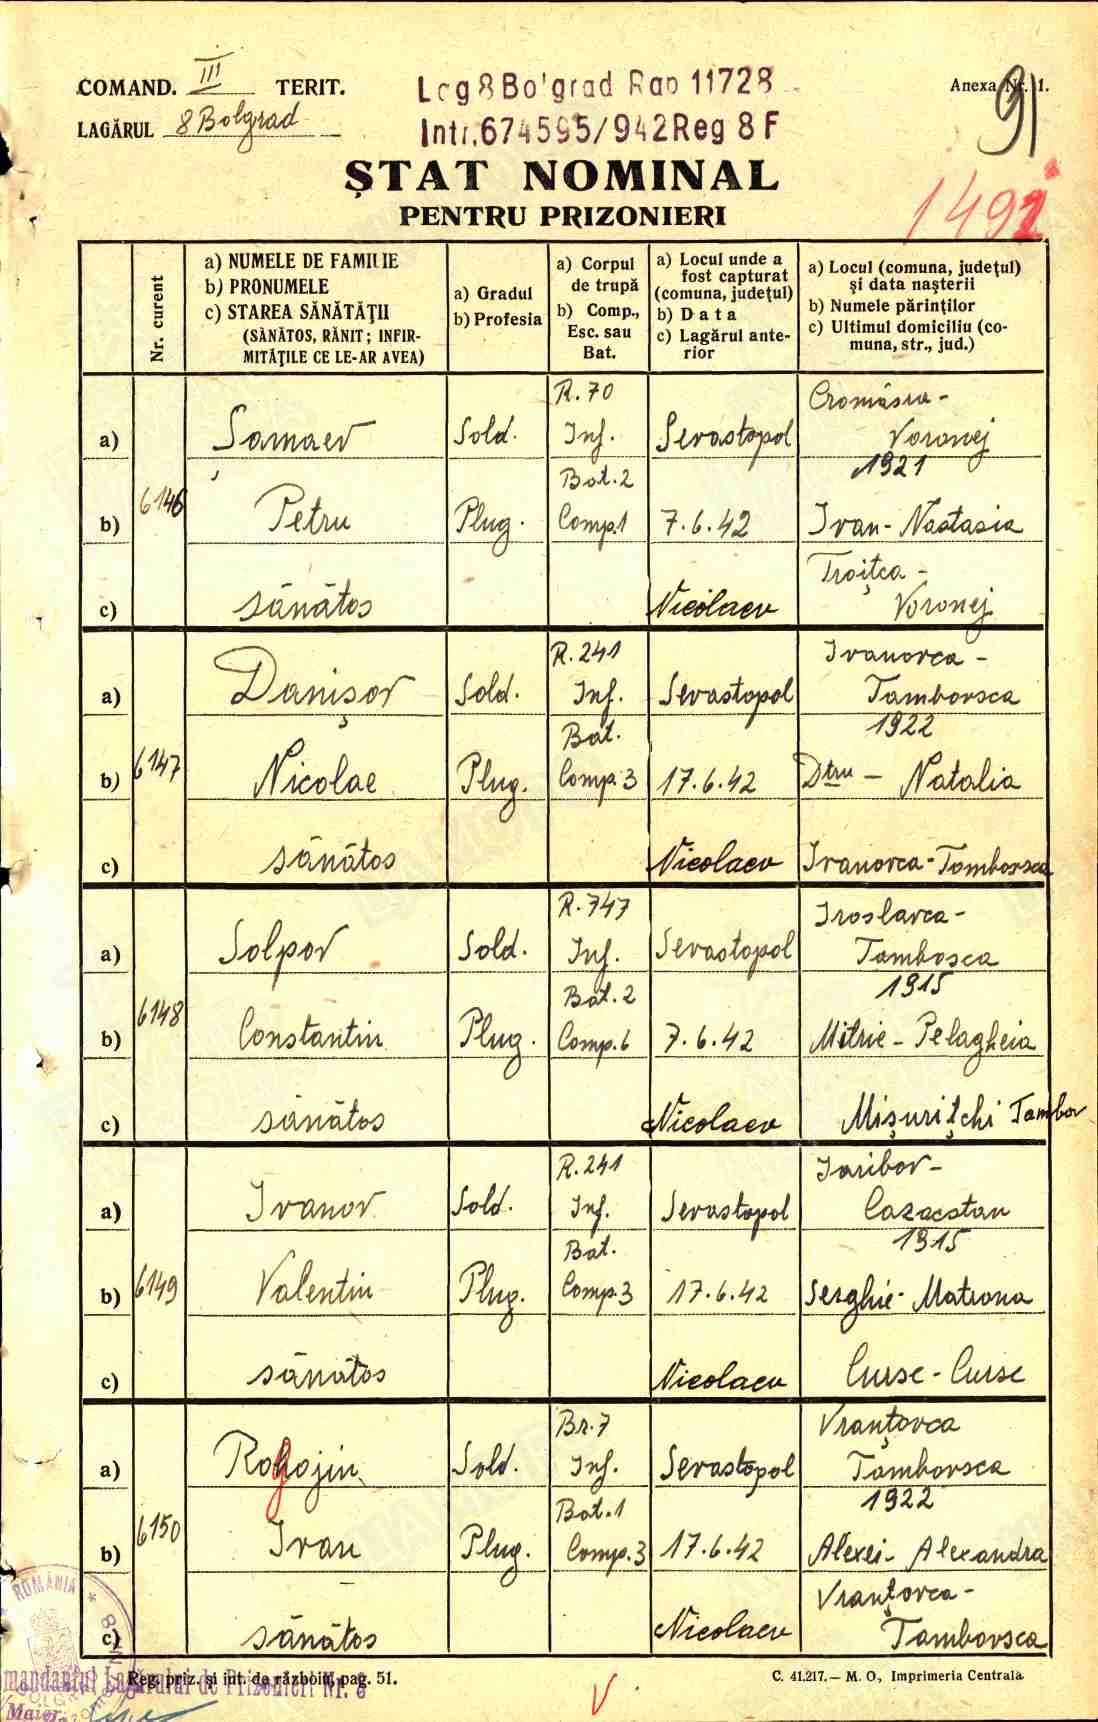 COMAND. III TERIT.
LAGĂRUL 8 Bolgrad
Lag 8 Bolgrad Rap 11728
Intr. 674595/942 Reg 8 F
Anexa Nr. 1.
91
1492
ȘTAT NOMINAL
PENTRU PRIZONIERI
Nr. curent
a) NUMELE DE FAMILIE
b) PRONUMELE
c) STAREA SĂNĂTĂŢII
(SĂNĂTOS, RĂNIT; INFIR-
MITĂŢILE CE LE-AR AVEA)
a) Gradul
b) Profesia
a) Corpul
de trupă
b) Comp.,
Esc. sau
Bat.
a) Locul unde a
fost capturat
(comuna, judeţul)
b) Data
c) Lagărul ante-
rior
a) Locul (comuna, judeţul)
şi data naşterii
b) Numele părinţilor
c) Ultimul domiciliu (co-
muna, str., jud.)
6146
a) Samaev Sold. R. 70 Inf. Sevastopol
Voronej
1921
b) Petru Plug. Bat. 2 Comp. 1 7.6.42 Ivan - Nastasia
c) sănătos Nicolaev Troițca -
Voronej
6147
a) Danișov Sold. R. 241 Inf. Sevastopol Ivanovca -
Tambovsca
1922
b) Nicolae Plug. Bat. Comp. 3 17.6.42 Dtru - Natalia
c) sănătos Nicolaev Ivanovca - Tambovsca
6148
a) Solpov Sold. R. 747 Inf. Sevastopol Iroslavca -
Tambosca
1915
b) Constantin Plug. Bat. 2 Comp. 6 7.6.42 Mitrie - Pelagheia
c) sănătos Nicolaev Mișurițchi Tambov
6149
a) Ivanov Sold. R. 241 Inf. Sevastopol
Cazacstan
1915
b) Valentin Plug. Bat. Comp. 3 17.6.42 Serghie - Matrona
c) sănătos Nicolaev Curse - Curse
6150
a) Rogojin Sold. Br. 7 Inf. Sevastopol Vranțovca
Tambovsca
1922
b) Ivan Plug. Bat. 1 Comp. 3 17.6.42 Alexei - Alexandra
c) sănătos Nicolaev Vranțovca -
Tambovsca
ROMÂNIA
Comandantul Lagărului de Prizonieri Nr. 8
Maior
Reg. priz. şi int. de război, pag. 51.
V
C. 41.217. — M. O., Imprimeria Centrala